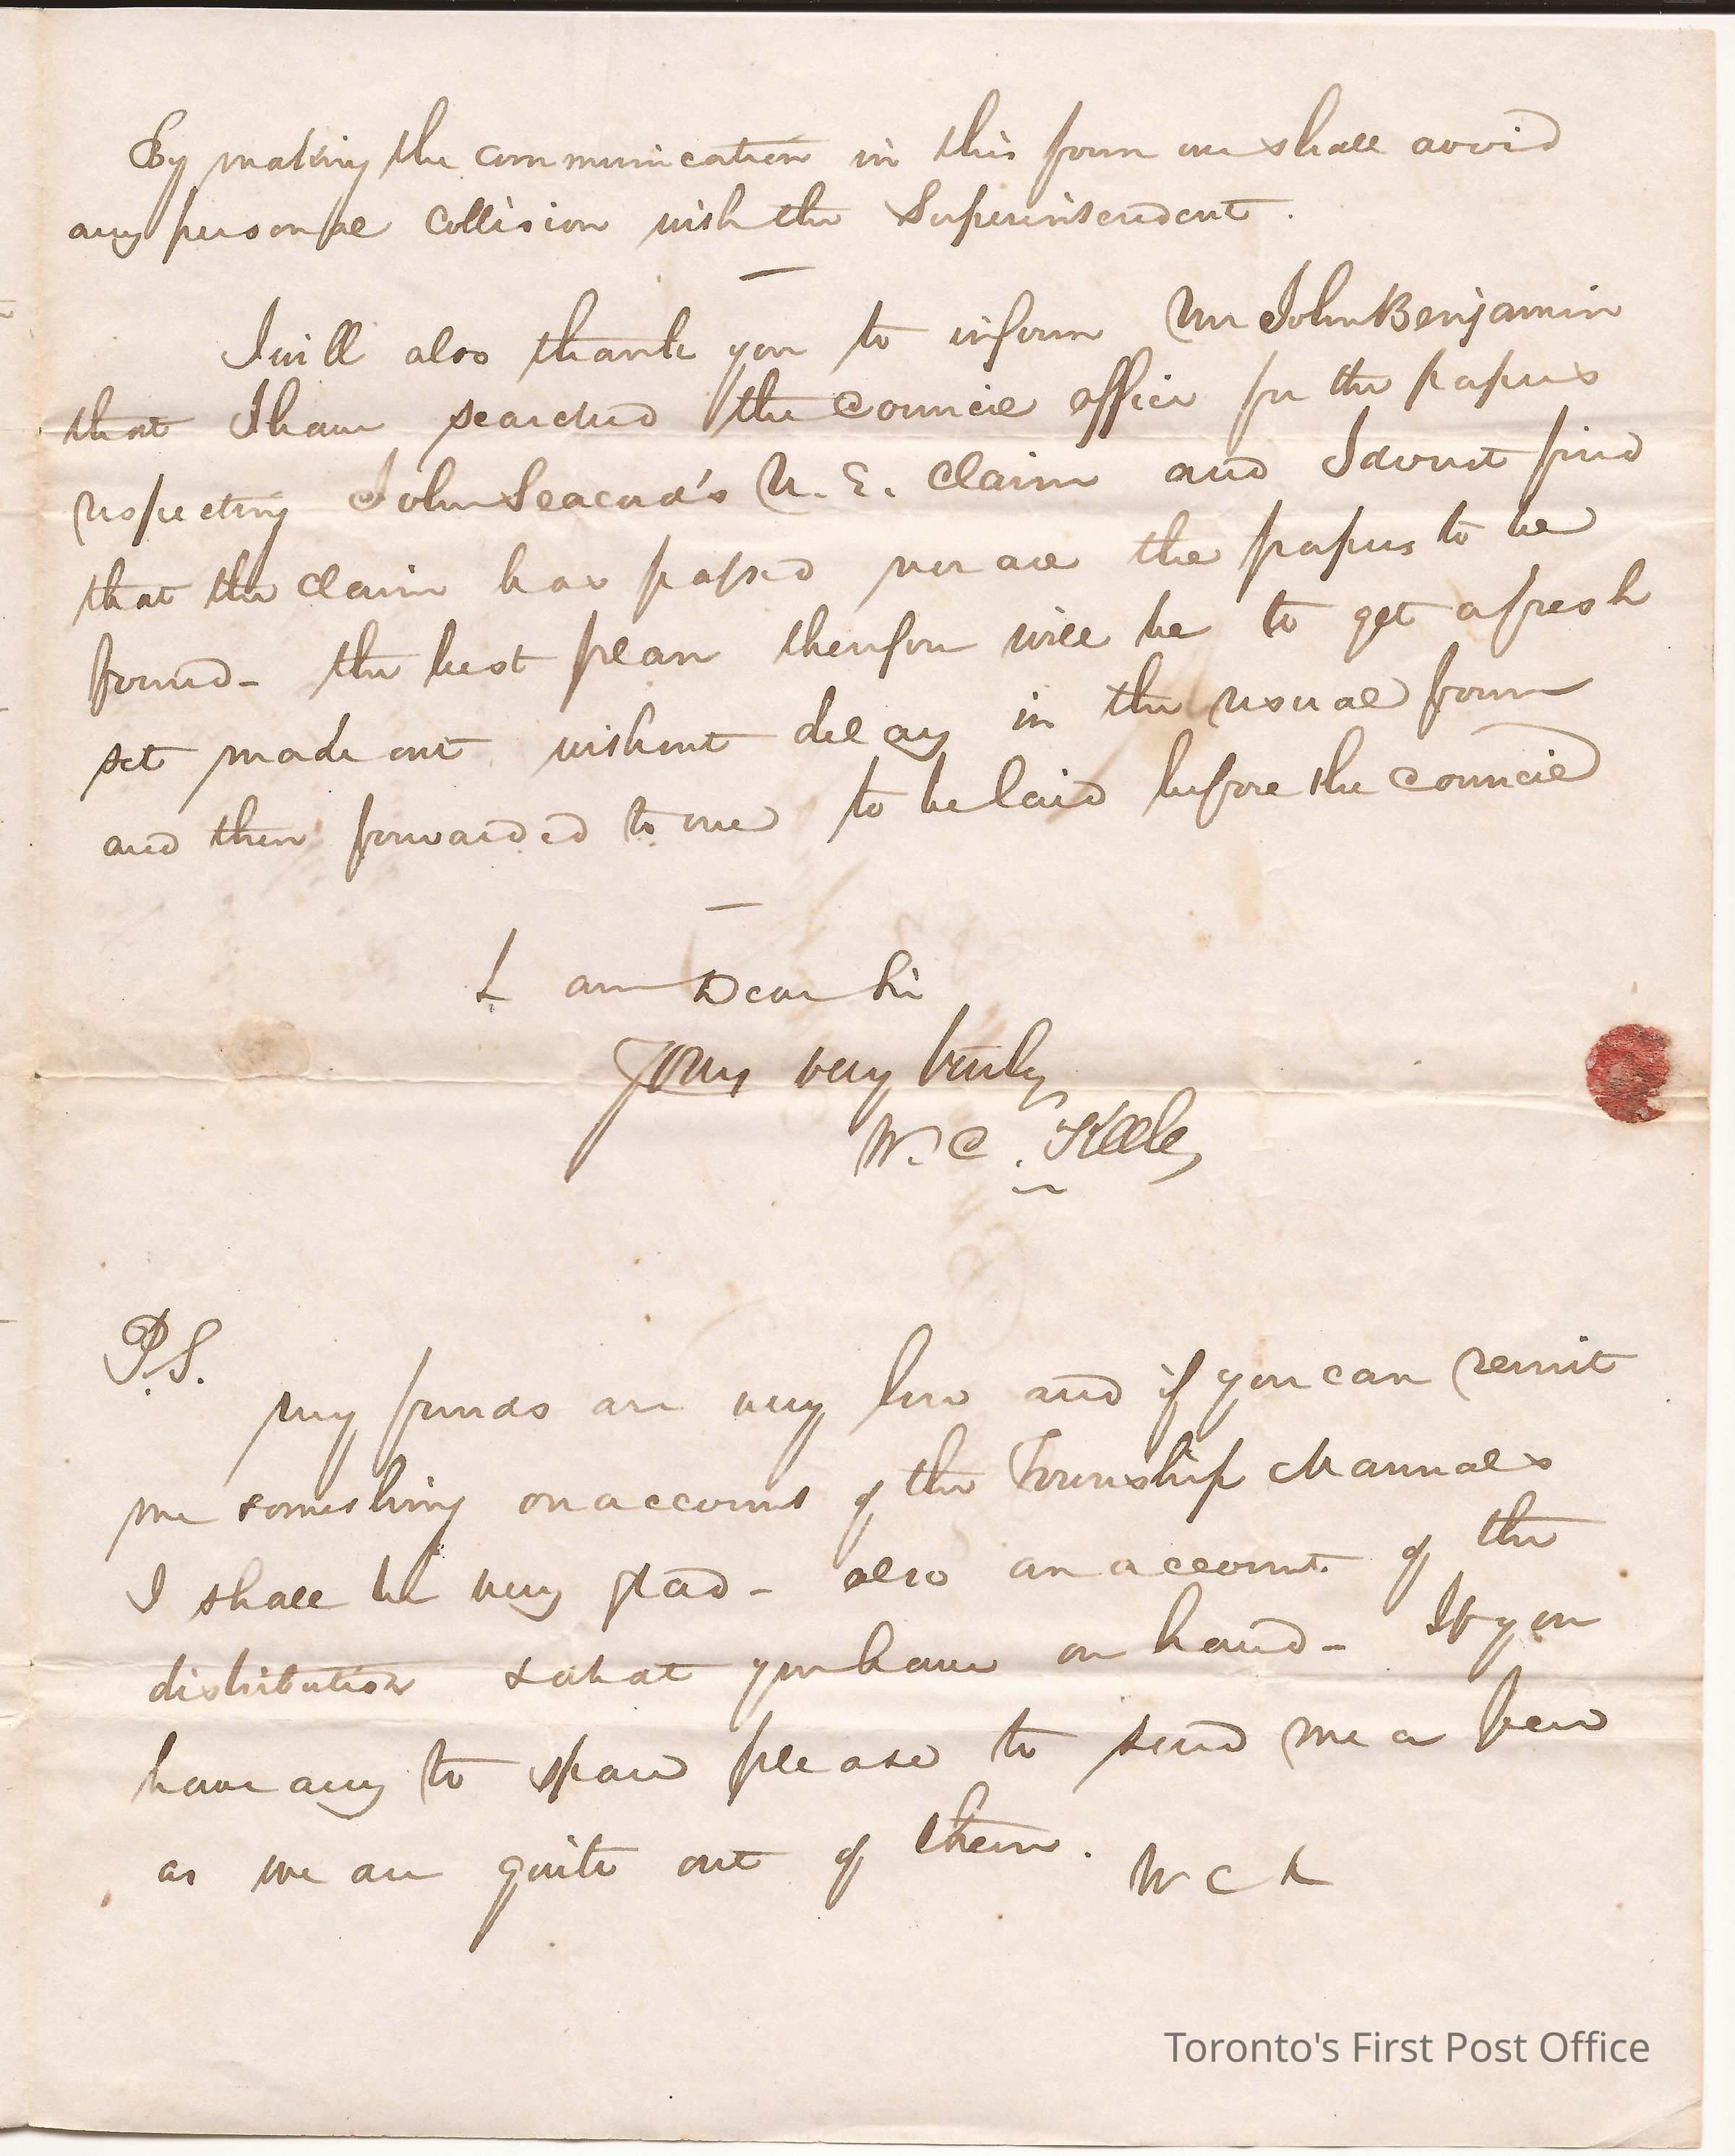 By making the communication in this form we shall avoid
any personal Collision with the Superintendent.
I will also thank you to inform Mr John Benjamin
that I have searched the Council office for the papers
respecting John Seacord's U. E. Claim and I do not find
that the Claim has passed nor are the papers to be
found - the best plan therefore will be to get a fresh
set made out without delay in the usual form
and then forwarded to me to be laid before the Council
I am Dear Sir
Yours very truly
W. C. Keele
P.S.
My funds are very low and if you can remit
me something on account of the Township Manuals
I shall be very glad - also an account of the
distribution & what you have on hand - If you
have any to spare please to send me a few
as we are quite out of them. W C K
Toronto's First Post Office